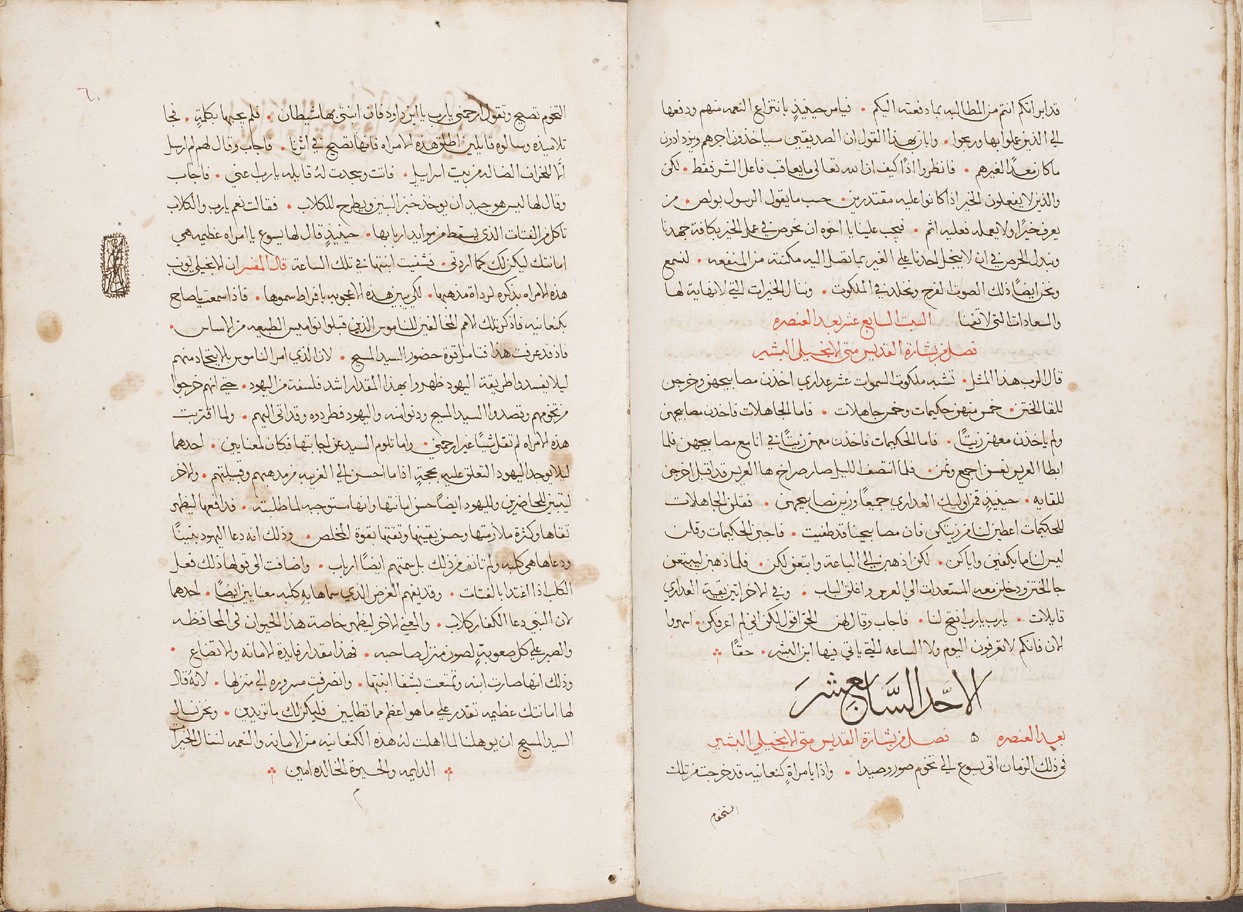 قد ابرانكم انتم من المطالبه بما دفعته اليكم • فيامر حينيذٍ بانتزاع النعمه منهم ودفعها
الي الذين عملوا بها وربحوا • وابان بهذا القول ان الصديقين سياخذون اجرهم ويزدادون
ما كان معدًا لغيرهم • فانظروا اذًا كيف ان الله تعالي ما يعاقب فاعل الشر فقط • لكن
والذين لا يفعلون الخير اذا كانوا عليه مقتدرين • حسب ما يقول الرسول بولص • من
يعرف خيرًا ولا يعمله فعليه اثم • فيجب علينا يا اخوه ان نحرص في عمل الخير بكافة جهدنا
ونبذل الحرص في ان لا يبخل احدنا علي الغير بما تصل اليه مكنته من المنفعه • لنسمع
ونحن ايضًا ذلك الصوت لفرح ونخلد في الملكوت • وننال الخيرات التي لا نهاية لها
والسعادات التي لا تفنا السبت السابع عشر بعد العنصره
فصل من بشارة القديس متي الانجيلي البشير
قال الرب هذا المثل • تشبه ملكوت السموات عشر عداري اخذن مصابيحهن وخرجن
للقا الختن • خمس منهن حكيمات وخمس جاهلات • فاما الجاهلات فاخذن مصابيحهن
ولم ياخذن معهن زيتًا • فاما الحكيمات فاخذن معهن زيتًا في انا مع مصابيحهن فلما
ابطا العريس نعسن اجمع ونمن • فلما انتصف الليل صار صراخ ها العريس قد اقبل اخرجن
للقايه • حينيذٍ قمن اوليك العداري جميعًا وزين مصابيحهن • فقلن الجاهلات
للحكيمات اعطين لنا من زيتكن فان مصابيحنا قد طفيت • فاجبن الحكيمات وقلن
ليس لنا ما يكفينا واياكن • لكن اذهبن الي الباعة وابتعن لكن • فلما ذهبن ليبتعن
جا الختن ودخلن معه المستعدات الي العرس واغلق الباب • وفي الاخر اتين بقية العداري
قايلات • يا رب يا رب افتح لنا • فاجاب وقال لهن الحق اقول لكن اني لم اعرفكن • اسهروا
الان فانكم لا تعرفون اليوم ولا الساعه التي ياتي فيها ابن البشر • حقًا
الاحد السابع عشر
بعد العنصره ه فصل من بشارة القديس متي الانجيلي البشير
في ذلك الزمان اتي يسوع الي تخوم صور وصيدا • واذا بامراةٍ كنعانيه قد خرجت من تلك
التخوم
التخوم تصيح وتقول ارحمني يا رب يا ابن داود فان ابنتي بها شيطان • فلم يجبها بكلمةٍ • فجا
تلاميذه وسالوه قايلين اطلق هذه الامراه فانها تصيح في اثرنا • فاجاب وقال لهم لم ارسل
الا الي الخراف الضاله من بيت اسراييل • فاتت وسجدت له قايله يا رب اعني • فاجاب
وقال لها ليس هو جيد ان يوخذ خبز البنين ويطرح للكلاب • فقالت نعم يا رب والكلاب
تاكل من الفتات الذي يسقط من موايد اربابها • حينيذٍ قال لها يسوع يا امراه عظيمه هي
امانتك ليكن لك كما اردتي • فشفيت ابنتها في تلك الساعة قال المفسر ان الانجيلي يونب
هذه الامراه بذكره لرداة مذهبها • لكي يبين هذه الاعجوبه بافراط سموها • فاذا سمعت يا صاح
بكنعانيه فاذكر تلك الامم المخالفين للناموس الذين قبلوا نواميس الطبيعه من الاساس •
فاذ قد عرفت هذا فتامل قوة حضور السيد المسيح • لان الذي امر الناموس بالابتعاد منهم
ليلا يفسدوا طريقة اليهود ظهروا بهذا المقدار اشد فلسفة من اليهود • حتي انهم خرجوا
من تخومهم وقصدوا السيد المسيح ودنوا منه واليهود فطردوه وقد اتي اليهم • ولما اقتربت
هذه الامراه لم تقل شيًا غير ارحمني • واما تلوم السيد عن اجابتها فكان لمعنايين • احدهما
ليلا يوجد اليهود التعلق عليه بحجةٍ اذا ما احسن الي الغريبه من مذهبهم وقبيلتهم • والاخر
ليتبين للحاضرين ولليهود ايضًا حسن امانتها وانها مستوجبه لما طلبته • فدافعها ليظهر
تقاها وكثرة ملازمتها وحسن يقينها وثقتها بقوة المخلص • وذلك انه دعا اليهود بنينًا
ودعاها هي كلبه ولم تانف من ذلك بل سمتهم ايضًا ارباب • واضافت الي قولها ذلك فعل
الكلب اذ الغتدا بالفتات • وقد يفهم الغرض الذي سماها به كلبه معنايين ايضًا • احدهما
لان النبي دعا الكفار كلاب • والمعني الاخر ليظهر خاصة هذا الحيوان في المحافظه
والصبر علي كل صعوبةٍ لصون منزل صاحبه • فهذا مقدار فايدة الامانه والاتضاع •
وذلك انها صارت ابنه وتمتعت بشفا ابنتها • وانصرفت مسروره الي منزلها • لانه قال
لها امانتك عظيمه تقدر علي ما هو اعظم مما تطلبين فليكن لك ما تريدين • ونحن نسال
السيد المسيح ان يوهلنا لما اهلت له هذه الكنعانيه من الامانه والنعمه لننال الخيرات
الدايمه والحيوة الخالده امين